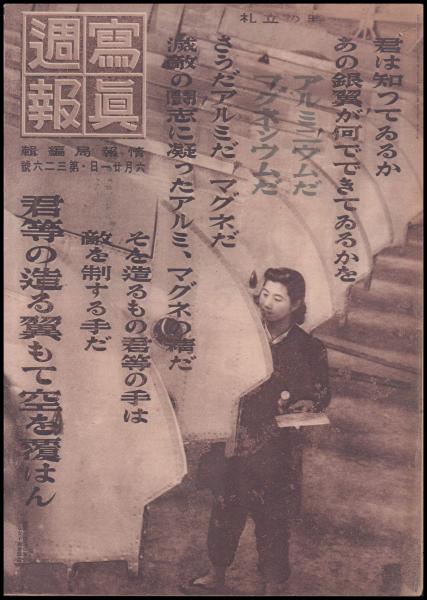 時の立札
寫眞週報
情報局編輯
六月廿一日・第三二六號
君は知つてゐるか
あの銀翼が何でできてゐるかを
アルミニウムだ
マグネシウムだ
さうだアルミだ、マグネだ
滅敵の闘志に凝つたアルミ、マグネの精だ
そを造るもの君等の手は
敵を制する手だ
君等の造る翼もて空を覆はん